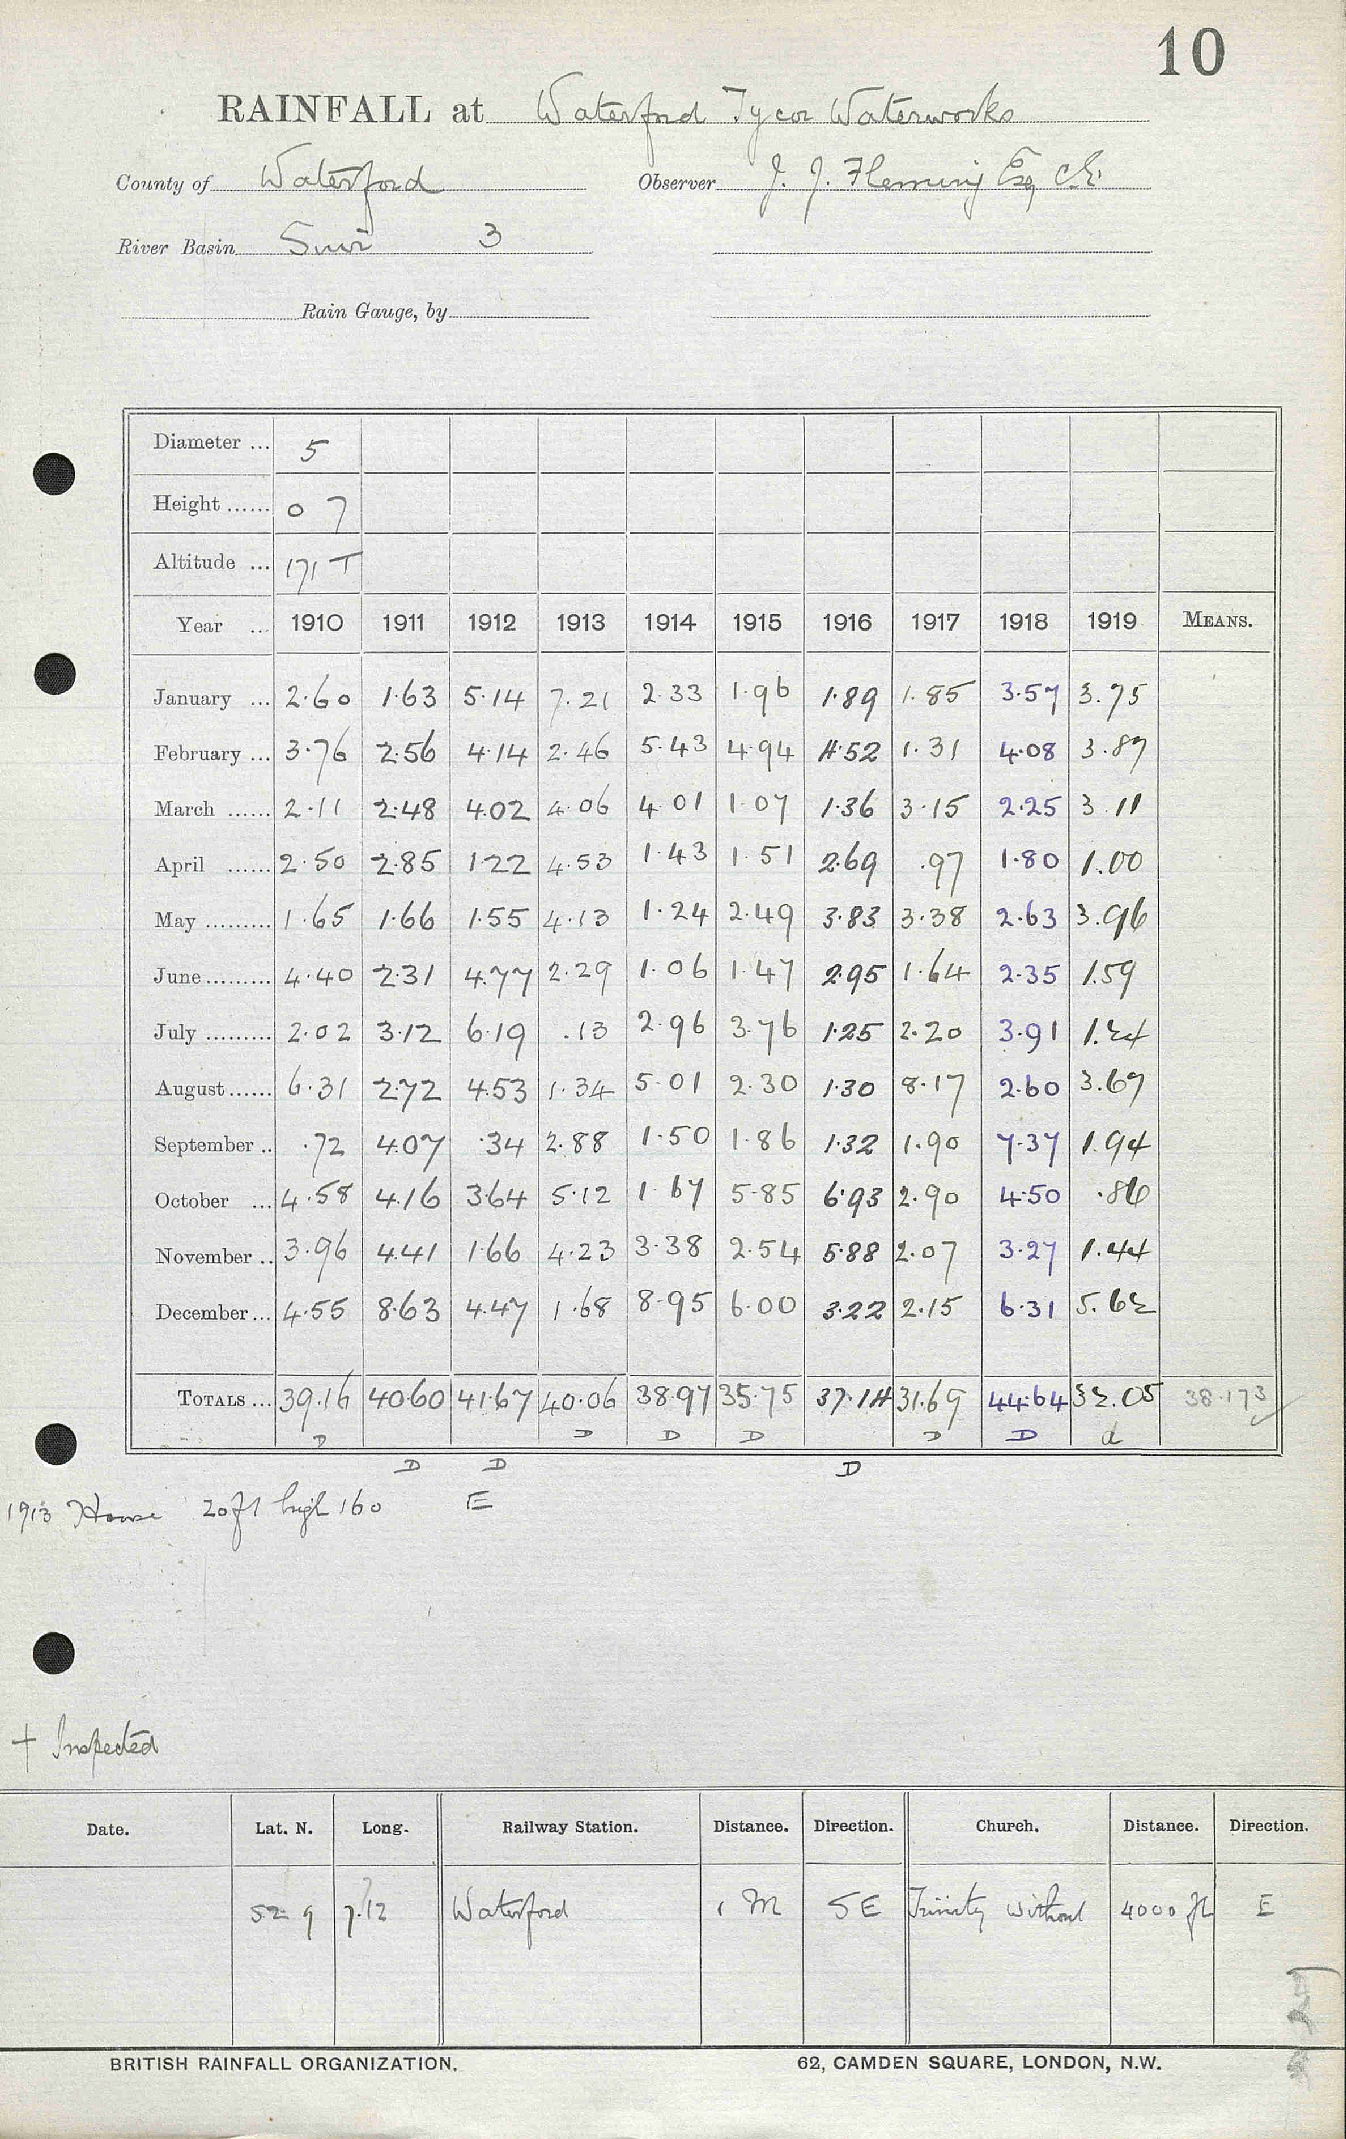 10
RAINFALL at Waterford Tycor Waterworks
County of Waterford Observer J. J. Fleming Esq C.E.
River Basin Suir 3
Rain Gauge, by
Diameter ... 5
Height ...... 0 7
Altitude ... 171 T
Year ... 1910 1911 1912 1913 1914 1915 1916 1917 1918 1919 MEANS.
January ... 2.60 1.63 5.14 7.21 2.33 1.96 1.89 1.85 3.57 3.75
February ... 3.76 2.56 4.14 2.46 5.43 4.94 4.52 1.31 4.08 3.87
March ...... 2.11 2.48 4.02 4.06 4.01 1.07 1.36 3.15 2.25 3.11
April ...... 2.50 2.85 1.22 4.53 1.43 1.51 2.69 .97 1.80 1.00
May ......... 1.65 1.66 1.55 4.13 1.24 2.49 3.83 3.38 2.63 3.96
June ......... 4.40 2.31 4.77 2.29 1.06 1.47 2.95 1.64 2.35 1.59
July ......... 2.02 3.12 6.19 .13 2.96 3.76 1.25 2.20 3.91 1.24
August ...... 6.31 2.72 4.53 1.34 5.01 2.30 1.30 8.17 2.60 3.67
September .. .72 4.07 .34 2.88 1.50 1.86 1.32 1.90 7.37 1.94
October ... 4.58 4.16 3.64 5.12 1.67 5.85 6.93 2.90 4.50 .86
November .. 3.96 4.41 1.66 4.23 3.38 2.54 5.88 2.07 3.27 1.44
December ... 4.55 8.63 4.47 1.68 8.95 6.00 3.22 2.15 6.31 5.62
TOTALS ... 39.16 40.60 41.67 40.06 38.97 35.75 37.14 31.69 44.64 32.05 38.173
D D D D D D d
D D D
1913 House 20 ft high 160 E
+ Inspected
Date. Lat. N. Long. Railway Station. Distance. Direction. Church. Distance. Direction.
52 9 7.12 Waterford 1 M SE Trinity Without 4000 ft E
BRITISH RAINFALL ORGANIZATION. 62, CAMDEN SQUARE, LONDON, N.W.